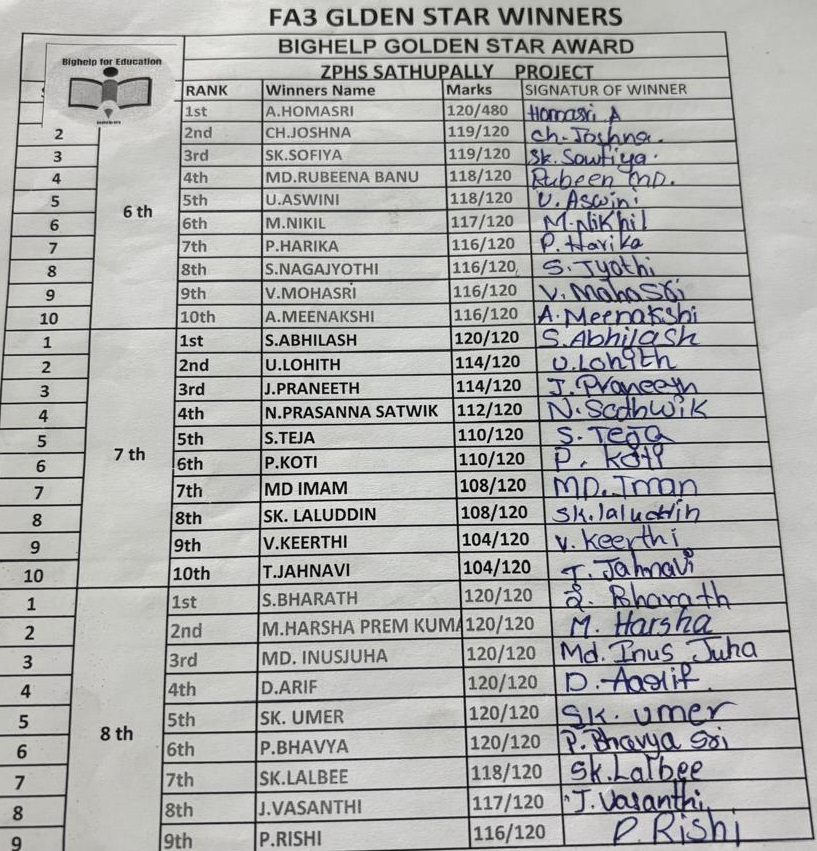 FA3 GLDEN STAR WINNERS
Bighelp for Education
BIGHELP GOLDEN STAR AWARD
ZPHS SATHUPALLY PROJECT
RANK Winners Name Marks SIGNATUR OF WINNER
1st A.HOMASRI 120/480 Homasri A
2 2nd CH.JOSHNA 119/120 Ch. Joshna.
3 3rd SK.SOFIYA 119/120 Sk. Sowfiya.
4 4th MD.RUBEENA BANU 118/120 Rubeen MD.
5 5th U.ASWINI 118/120 U. Aswini
6 th
6 6th M.NIKIL 117/120 M.Nikhil
7 7th P.HARIKA 116/120 P. Harika
8 8th S.NAGAJYOTHI 116/120 S. Jyothi
9 9th V.MOHASRI 116/120 V. Mohasri
10 10th A.MEENAKSHI 116/120 A.Meenakshi
1 1st S.ABHILASH 120/120 S.Abhilash
2 2nd U.LOHITH 114/120 U.Lohith
3 3rd J.PRANEETH 114/120 J.Praneeth
4 4th N.PRASANNA SATWIK 112/120 N. Sadhwik
5 5th S.TEJA 110/120 S. Teja
7 th
6 6th P.KOTI 110/120 P. Koti
7 7th MD IMAM 108/120 MD. Iman
8 8th SK. LALUDDIN 108/120 Sk.laluddin
9 9th V.KEERTHI 104/120 V. Keerthi
10 10th T.JAHNAVI 104/120 T. Jahnavi
1 1st S.BHARATH 120/120 S. Bharath
2 2nd M.HARSHA PREM KUMA 120/120 M. Harsha
3 3rd MD. INUSJUHA 120/120 Md. Inus Juha
4 4th D.ARIF 120/120 D. Aarif
5 5th SK. UMER 120/120 SK. umer
8 th
6 6th P.BHAVYA 120/120 P. Bhavya Sri
7 7th SK.LALBEE 118/120 Sk.Lalbee
8 8th J.VASANTHI 117/120 J. Vasanthi
9 9th P.RISHI 116/120 P. Rishi